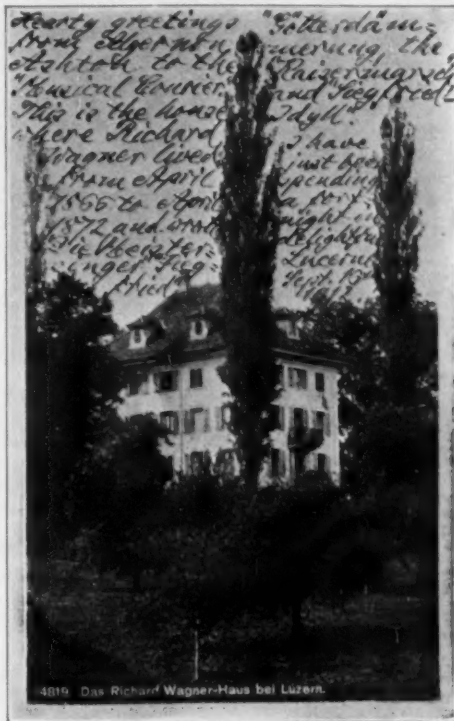 Hearty greetings
from Algernon
Ashton to the
"Musical Courier"
This is the house
where Richard
Wagner lived
from April
1866 to April
1872 and wrote
"Die Meister-
singer," "Sieg-
fried"
"Götterdäm-
merung, the
"Kaisermarsch
and Siegfried
Idyll."
I have
just been
spending
a fort-
night in
delightful
Lucerne
Sept.
4819 Das Richard Wagner-Haus bei Luzern.